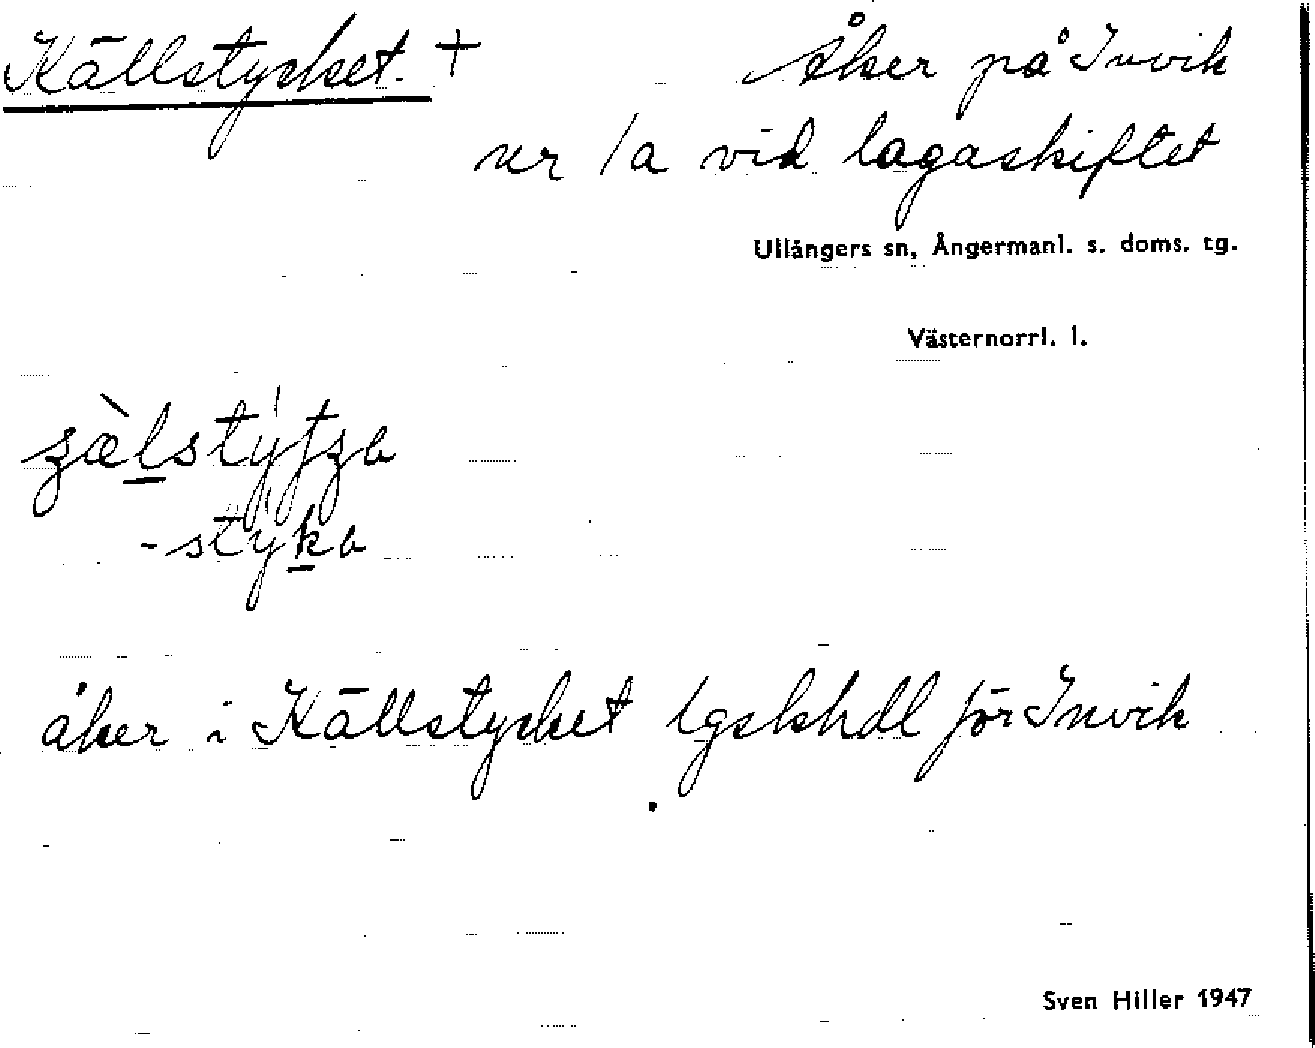 Källstycket. + Åker på Invik
nr 1a vid lagaskiftet
Ullångers sn, Ångermanl. s. doms. tg.
Västernorrl. l.
åker i Källstycket lgskhdl för Invik
Sven Hiller 1947